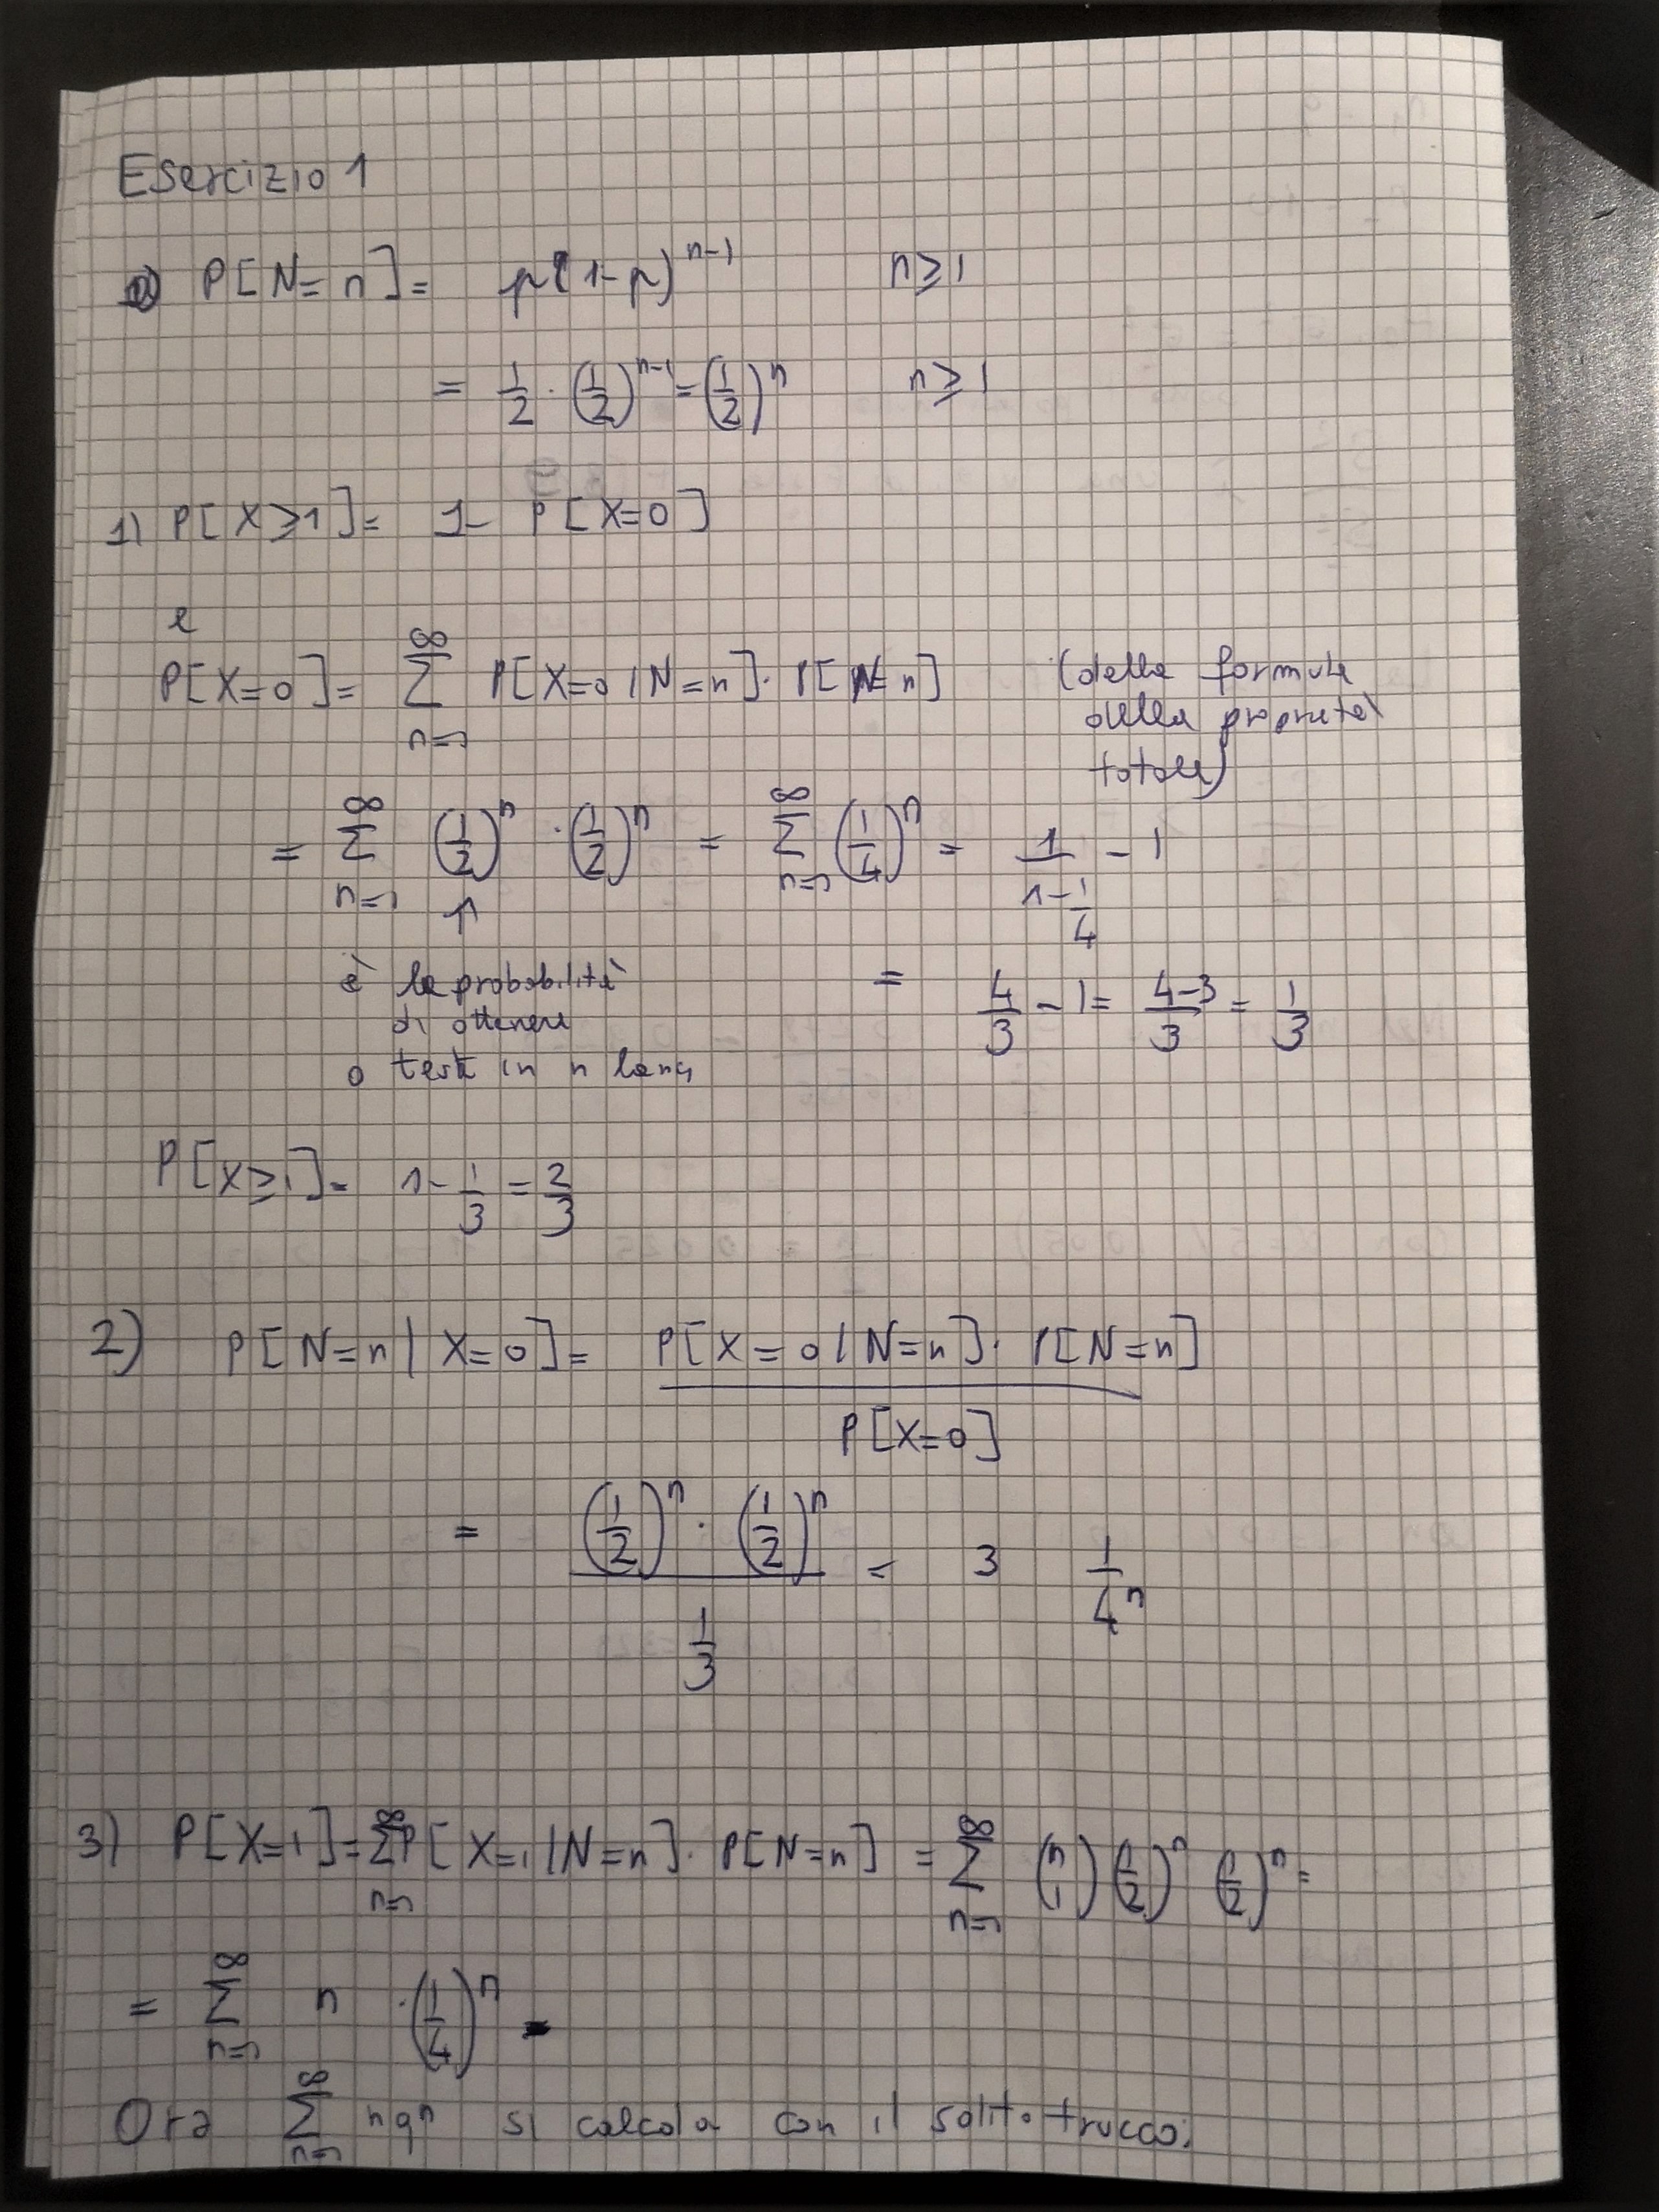 Esercizio 1
0) P[N=n] = p(1-p)^{n-1} n≥1
= 1/2 · (1/2)^{n-1} = (1/2)^n n≥1
1) P[X≥1] = 1 - P[X=0]
e
P[X=0] = ∑_{n=1}^{∞} P[X=0|N=n] · P[N=n] (dalla formula
della proprietà
totale)
= ∑_{n=1}^{∞} (1/2)^n · (1/2)^n = ∑_{n=1}^{∞} (1/4)^n = 1/(1-1/4) - 1
↑
= 4/3 - 1 = (4-3)/3 = 1/3
è la probabilità
di ottenere
0 teste in n lanci
P[X≥1] = 1 - 1/3 = 2/3
2) P[N=n | X=0] = P[X=0|N=n] · P[N=n] / P[X=0]
= (1/2)^n · (1/2)^n / (1/3) = 3 1/4^n
3) P[X=1] = ∑_{n=1}^{∞} P[X=1|N=n] · P[N=n] = ∑_{n=1}^{∞} (n 1) (1/2)^n (1/2)^n =
= ∑_{n=1}^{∞} n · (1/4)^n
Ora ∑_{n=1}^{∞} nq^n si calcola con il solito trucco: